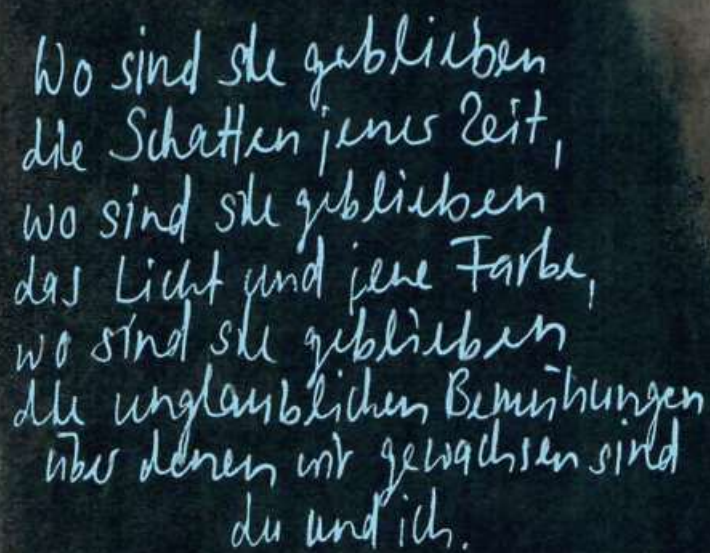 Wo sind sie geblieben
die Schatten jener Zeit,
wo sind sie geblieben
das Licht und jene Farbe,
wo sind sie geblieben
die unglaublichen Bemühungen
über denen wir gewachsen sind
du und ich.